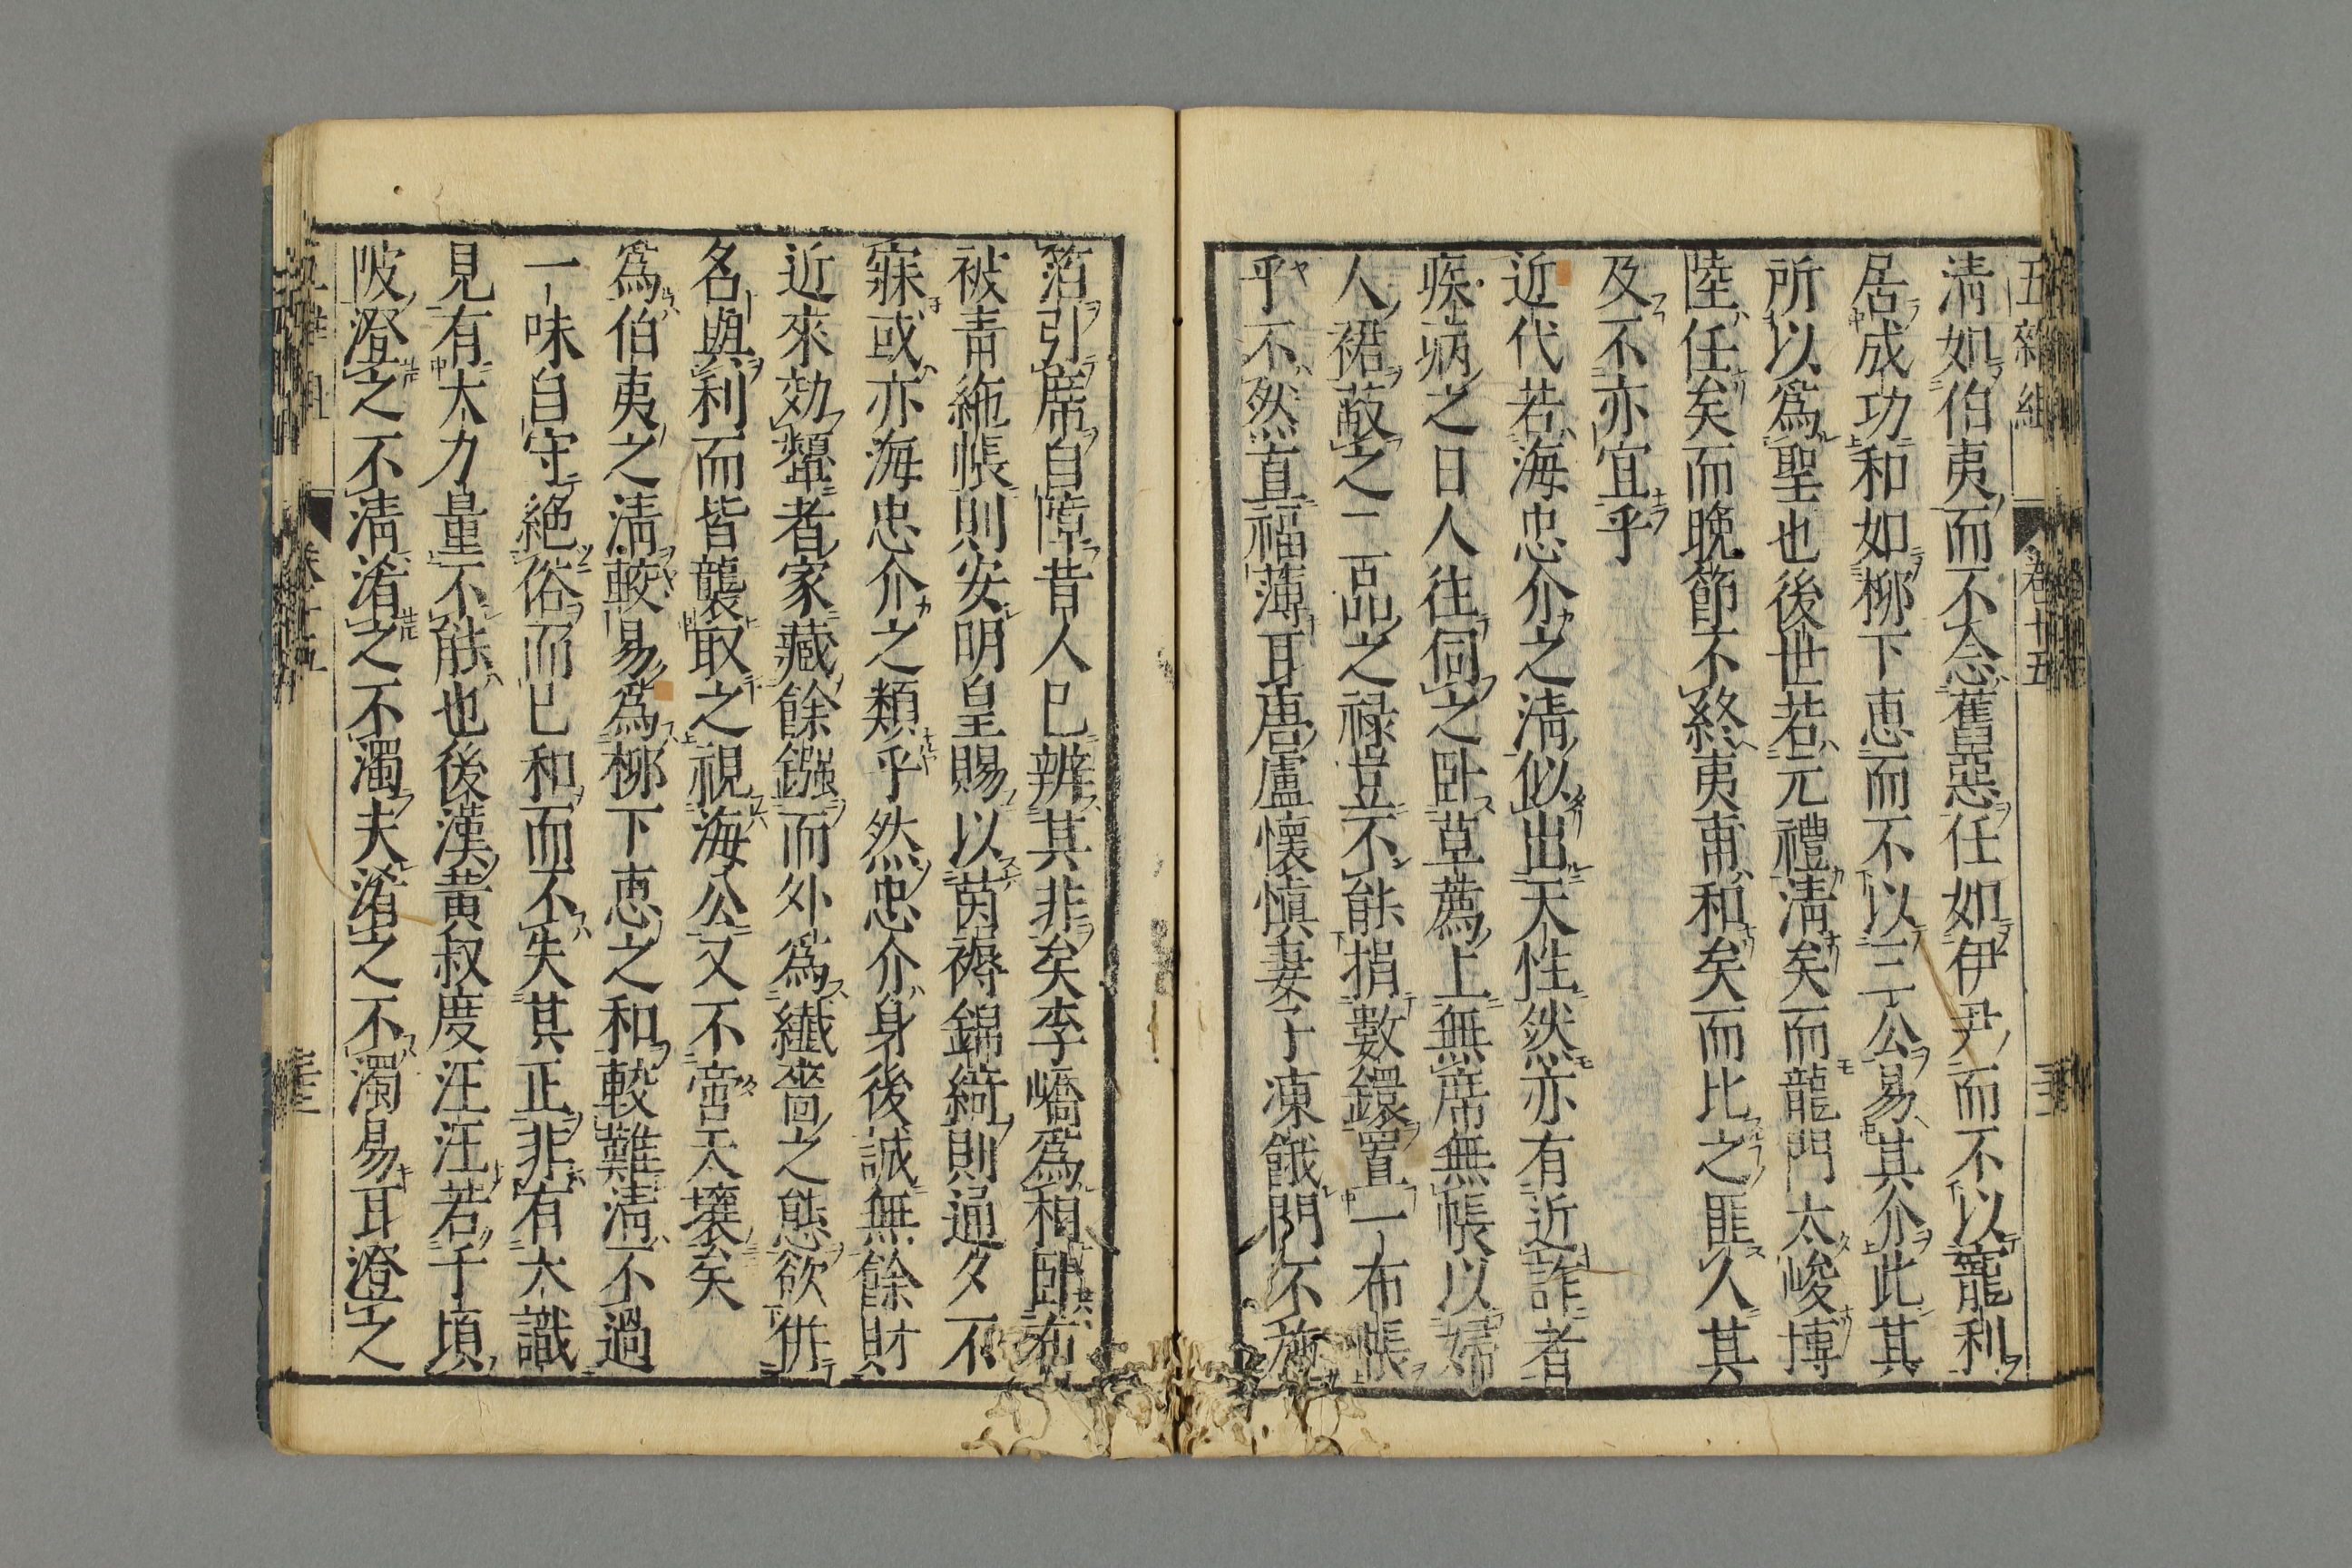 五雜組 卷十五
清如伯夷而不念舊惡任如伊尹而不以寵利
居成功和如柳下惠而不以三公易其介此其
所以爲聖也後世若元禮清矣而龍門太峻博
陸任矣而晚節不終夷甫和矣而比之匪人其
及不亦宜乎
近代若海忠介之清似出天性然亦有近詐者
疾病之日人往伺之卧草薦上無席無帳以婦
人裙蔽之二品之禄豈不能捐數鐶置一布帳
乎不然直福薄耳唐盧懷慎妻子凍餓門不施
箔引席自障昔人已辨其非矣李嶠爲相卧布
被青絁帳則安明皇賜以茵褥錦綺則通夕不
寐或亦海忠介之類乎然忠介身後誠無餘財
近來効顰者家藏餘鏹而外爲纖嗇之態欲併
名與利而皆襲取之視海公又不啻天壤矣
爲伯夷之清較易爲柳下惠之和較難清不過
一味自守絶俗而已和而不失其正非有大識
見有大力量不能也後漢黄叔度汪汪若千頃
陂澄之不清淆之不濁夫淆之不濁易耳澄之
卷十五